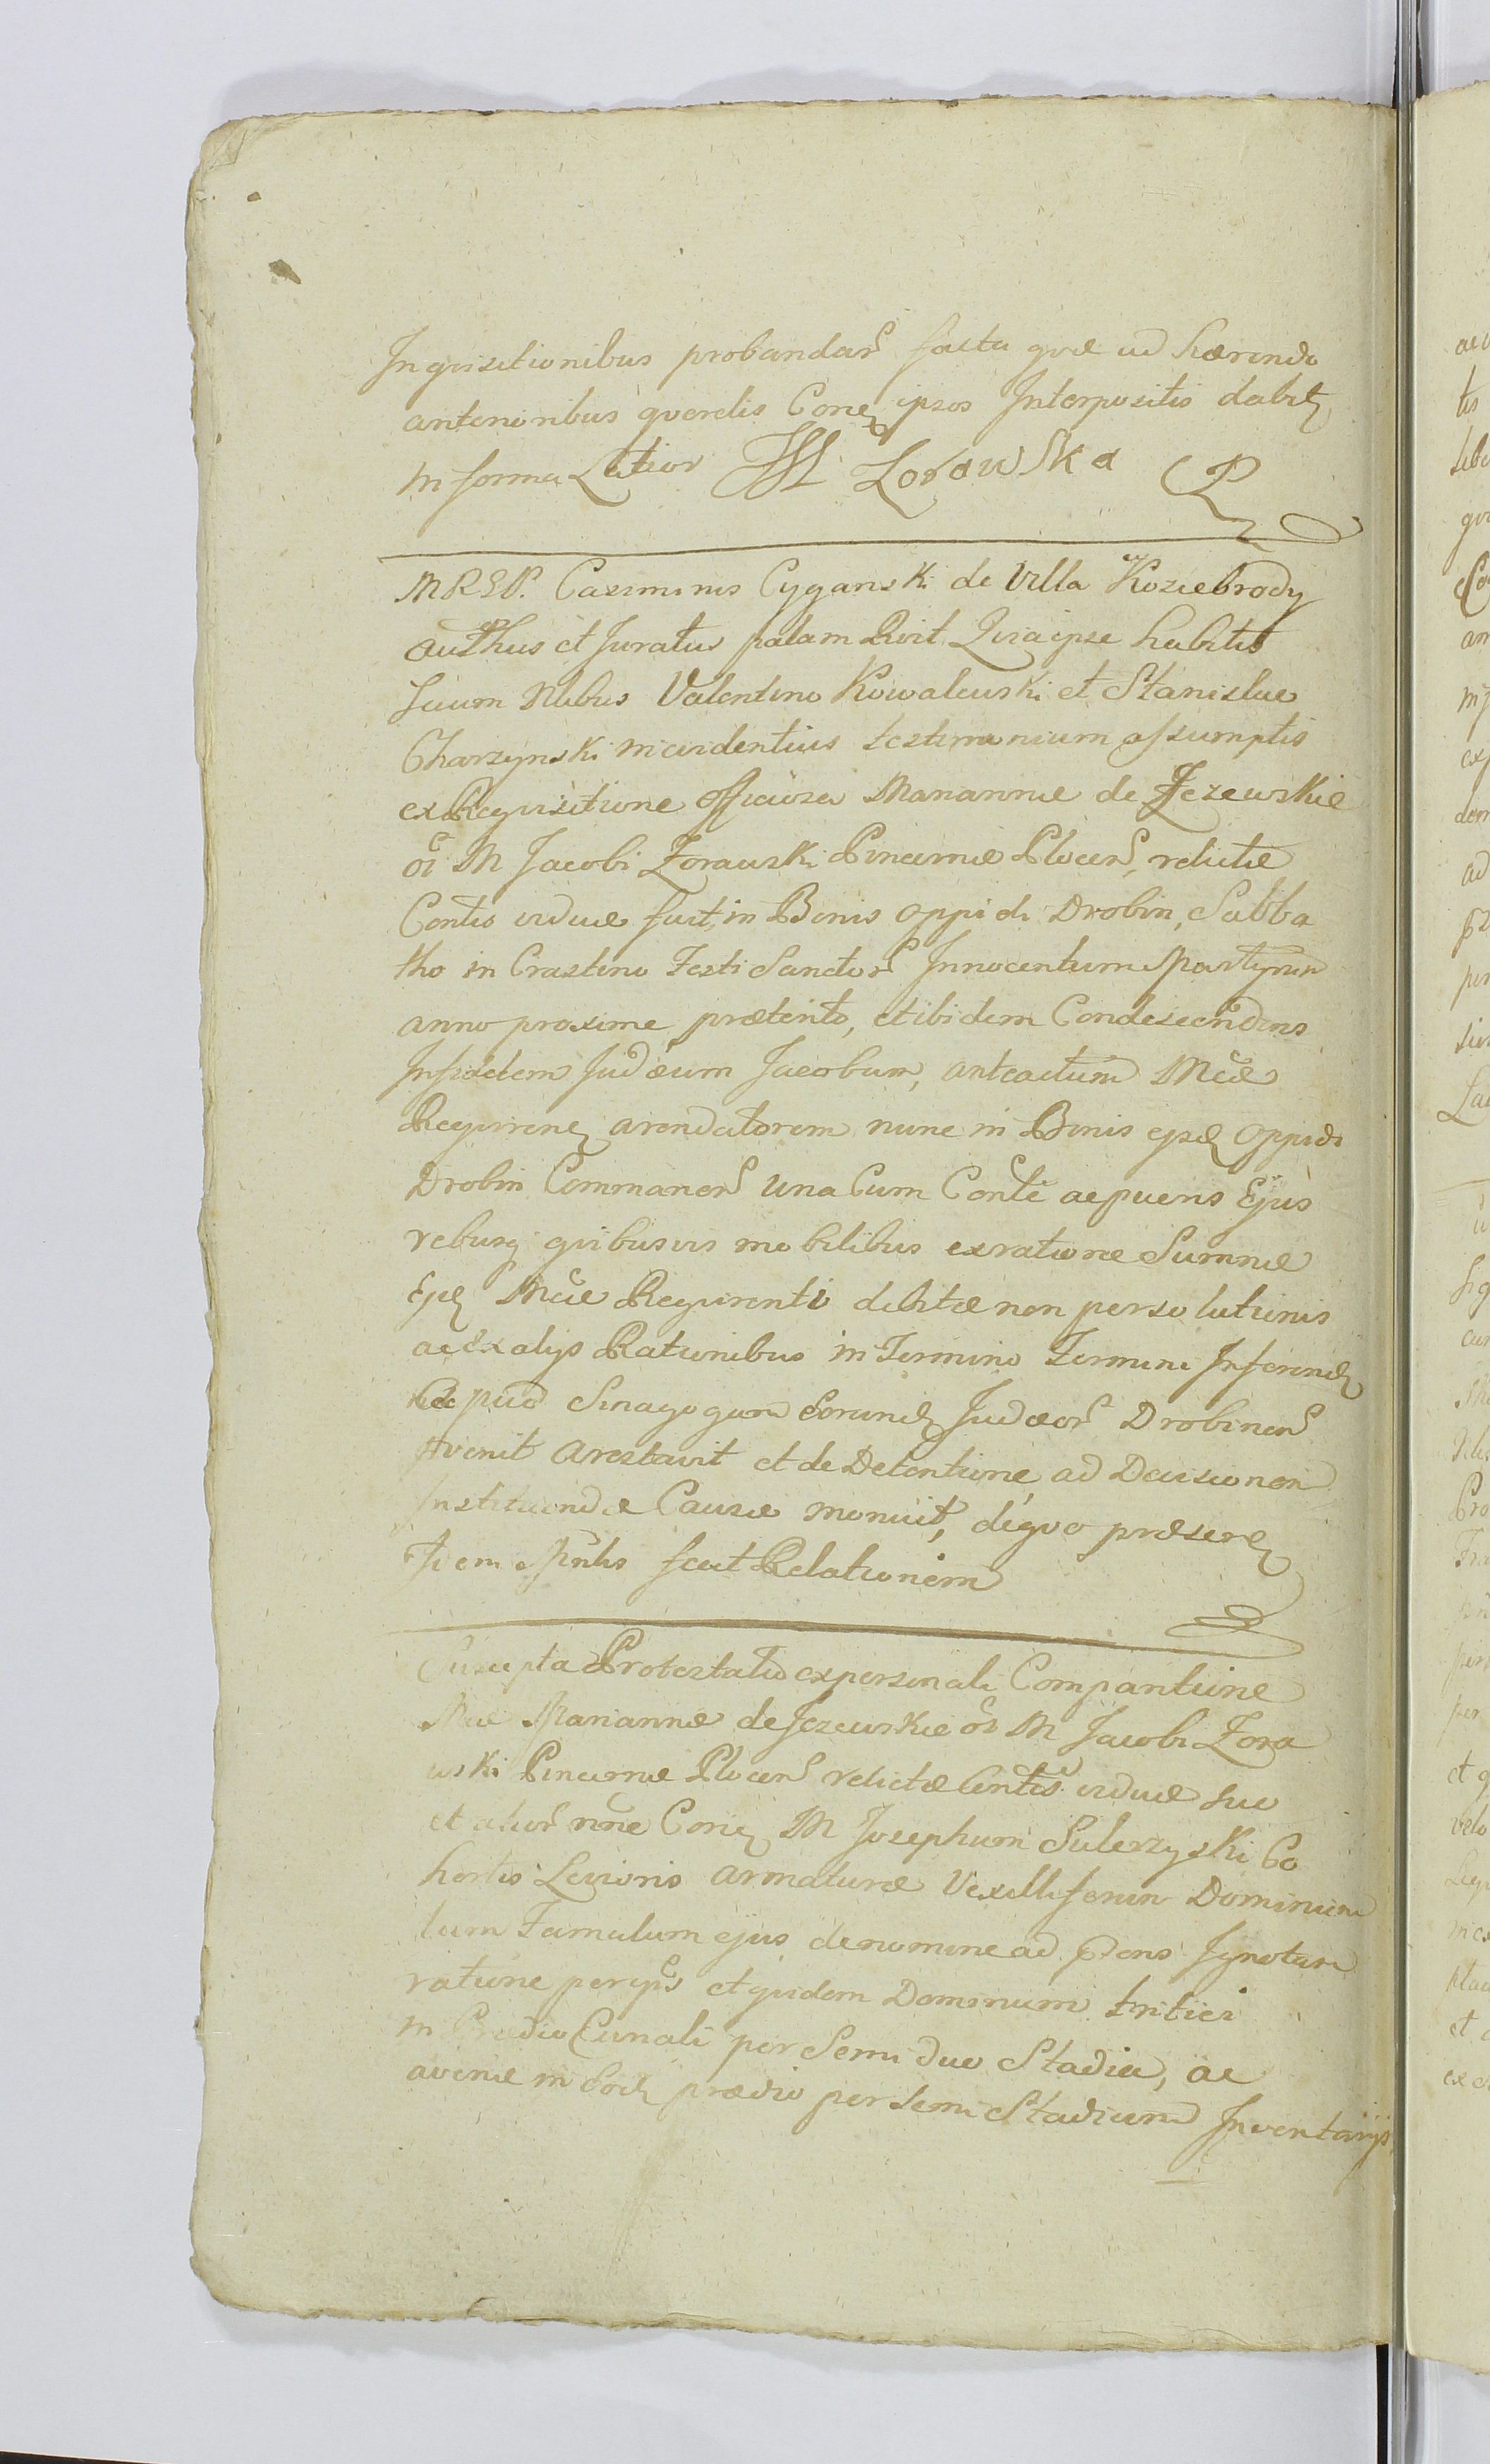 Inquisitionibus probandar facta quæ ad hærendo
anterioribus querelis Conq ipsos Interpositis dabitq
in forma Latior M Zorawska
MRGP. Casimirus Cyganski de Villa Koziebrody
authus et Juratus palam Rvit Quia ipse habitis
secum Nlibus Valentino Kowalewski et Stanislao
Charzynski in evidentius testimonium assumptis
ex Requisitione officiosa Mariannæ de Jezewskie
oi M Jacobi Zorawski Pincernæ Plocen, relictæ
Contis viduæ fuit, in Bonis oppidi Drobin, Sabba
tho in Crastino Festi Sanctor Innocentum Martyrum
anno proxime præterito, et ibidem Condescendens
Infidelem Judæum Jacobum, anteactum Mcæ
Requirenq arendatorem nunc in Bonis ejusdq oppidi
Drobin Commanen una Cum Conte ac pueris Ejus
rebusq quibusvis mobilibus ex ratione Summæ
Ejdq Mcæ Requirenti debitæ non persolutionis
ac Ex alijs Rationibus in Termino Termini Inferendq
apud Sinagogam Eorundq Judæor Drobinen
 arestavit et de Detentione ad Decisionem
Instituendæ Causæ monuit, de quo præsen
 fecit Relationem
Suscepta Protestatio ex personali Comparitione
Mcæ Mariannæ de Jezewskie oi M Jacobi Zora
wski Pincernæ Plocen relictæ Contis viduæ suo
et alior nne Conq M Josephum Sulerzyski Co
hortis Levioris armaturæ Vexilliferum Dominum
tum Famulum ejus de nomine ad præns Ignotum
ratione  et quidem Dominum tritici
in Prædio Curiali per Semi duo Stadia, ac
avenæ in Eodq prædio per Semi Stadium Inventarijs